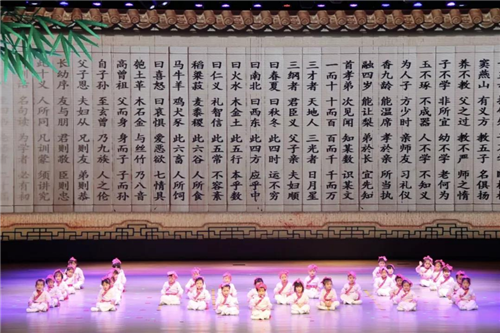 窦燕山 有义方 教五子 名俱扬
养不教 父之过 教不严 师之惰
子不学 非所宜 幼不学 老何为
玉不琢 不成器 人不学 不知义
为人子 方少时 亲师友 习礼仪
香九龄 能温席 孝于亲 所当执
融四岁 能让梨 弟于长 宜先知
首孝弟 次见闻 知某数 识某文
一而十 十而百 百而千 千而万
三才者 天地人 三光者 日月星
三纲者 君臣义 父子亲 夫妇顺
曰春夏 曰秋冬 此四时 运不穷
曰南北 曰西东 此四方 应乎中
曰水火 木金土 此五行 本乎数
曰仁义 礼智信 此五常 不容紊
稻粱菽 麦黍稷 此六谷 人所食
马牛羊 鸡犬豕 此六畜 人所饲
曰喜怒 曰哀惧 爱恶欲 七情具
匏土革 木石金 与丝竹 乃八音
高曾祖 父而身 身而子 子而孙
自子孙 至玄曾 乃九族 人之伦
父子恩 夫妇从 兄则友 弟则恭
长幼序 友与朋 君则敬 臣则忠
此十义 人所同 凡训蒙 须讲究
句读 为学者 必有初